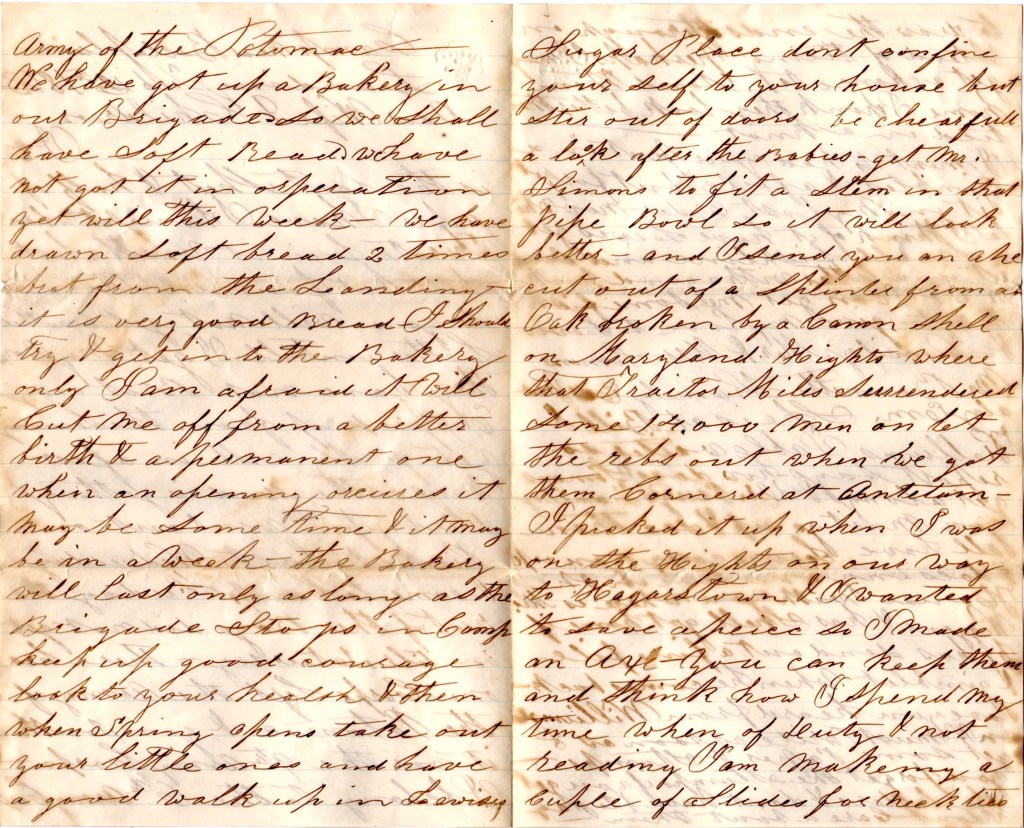 Army of the Potomac —
We have got up a Bakery in
our Brigade so we shall
have Soft Bread we have
not got it in orsperation
yet will this week — we have
drawn Soft bread 2 times
but from the Landing —
it is very good Bread I should
try & get in to the Bakery
only I am afraid it will
Cut me off from a better
birth & a permanent one
when an opening orcures it
may be some time & it may
be in a week — the Bakery
will Last only as long as the
Brigade Stops in Camp
keep up good courage
look to your health & then
when Spring opens take out
your little ones and have
a good walk up in
Sugar Place dont confine
your self to your house but
stir out of doors be chearfull
a look after the Babies — get Mr.
Simons to fit a Stem in that
Pipe Bowl so it will look
better — and I send you an axe
cut out of a Splinter from an
Oak broken by a Canon Shell
on Maryland Hights where
that Traitor Miles Surrendered
some 14.000 men an let
the rebs out when we got
them Cornerd at Antetam —
I picked it up when I was
on the Hights on our way
to Hagarstown & I wanted
to save a peice so I made
an Axe — You can keep them
and think how I spend my
time when of Duty & not
reading I am makeing a
Cuple of Slides for neck ties